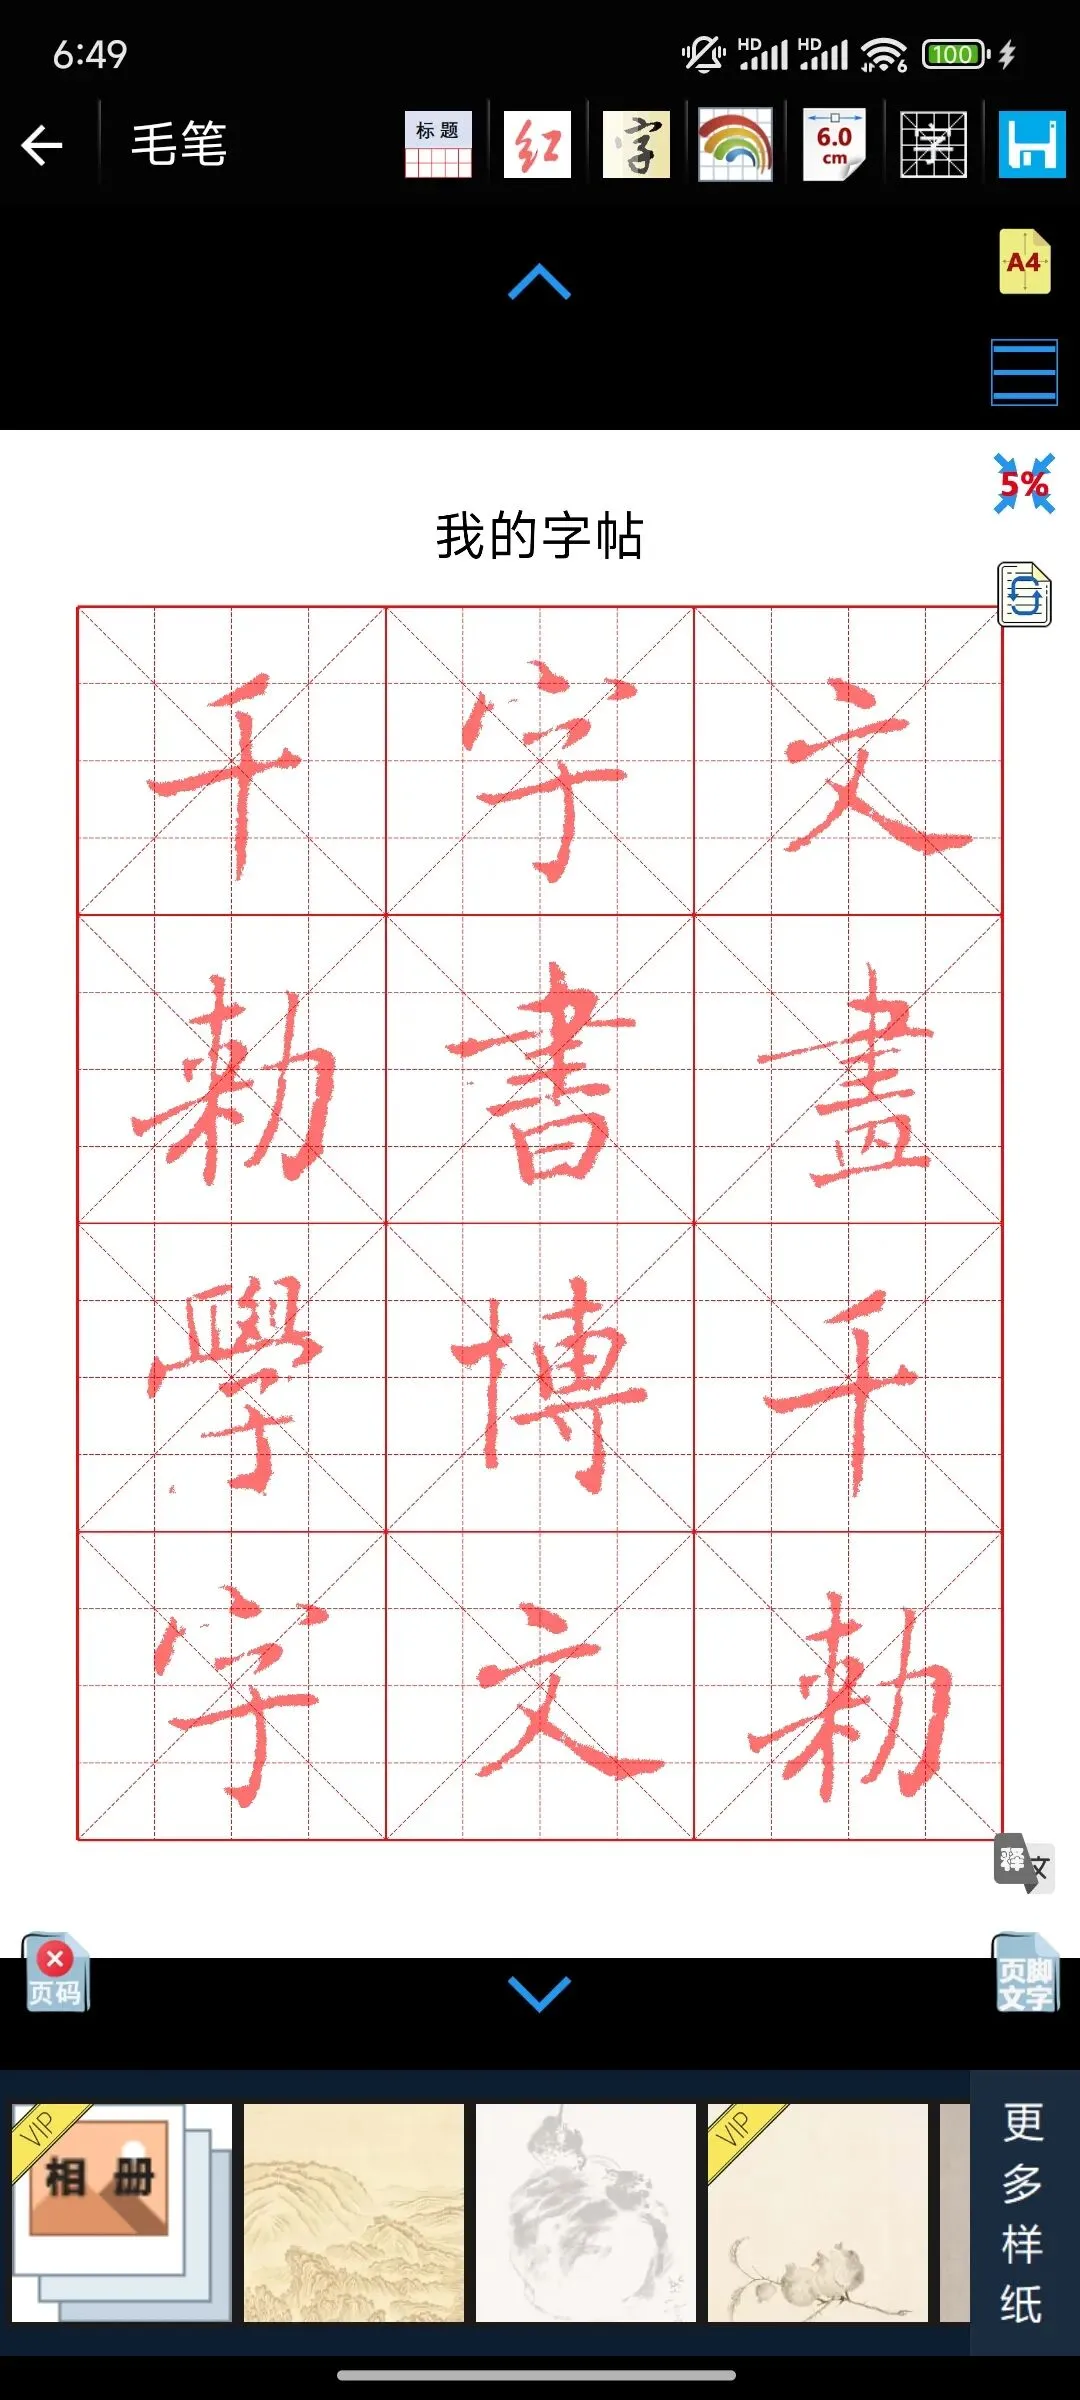 6:49
HD HD 6 100
毛笔
标题
红
字
6.0
cm
字
A4
5%
我的字帖
千字文
勅書畫
學博千
字文勅
译文
页码
页脚
文字
VIP
相册
VIP
更多样纸